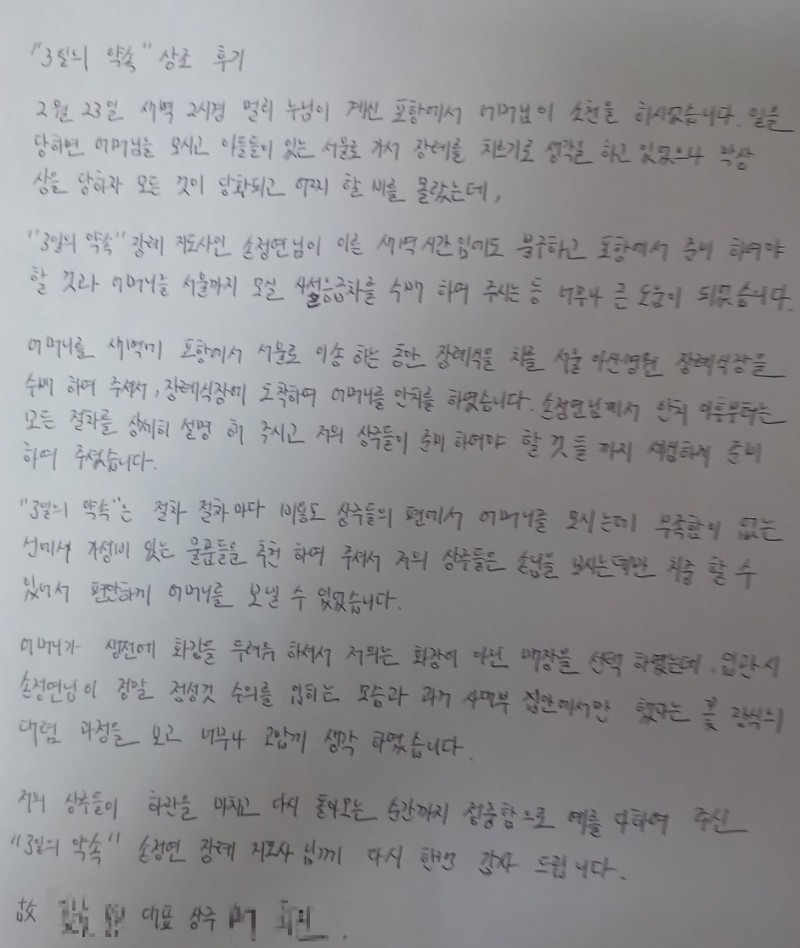 "3일의 약속" 상조 후기
2월 23일 새벽 2시경 멀리 누님이 계신 포항에서 어머님이 소천을 하시었습니다. 일을
당하면 어머님을 모시고 아들들이 있는 서울로 가서 장례를 치르기로 생각을 하고 있었으나 막상
상을 당하자 모든 것이 당황되고 어찌 할 바를 몰랐는데,
"3일의 약속" 장례 지도사인 손정연님이 이른 새벽시간임에도 불구하고 포항에서 준비 하여야
할 것과 어머니를 서울까지 모실 사설응급차를 수배 하여 주시는 등 너무나 큰 도움이 되었습니다.
어머니를 새벽에 포항에서 서울로 이송 하는 동안 장례식을 치를 서울 아산병원 장례식장을
수배 하여 주셔서, 장례식장에 도착하여 어머니를 안치를 하였습니다. 손정연님께서 안치 이후부터는
모든 절차를 상세히 설명 해 주시고 저의 상주들이 준비 하여야 할 것 들 까지 세심하게 준비
하여 주셨습니다.
"3일의 약속"은 절차 절차 마다 비용도 상주들의 편에서 어머니를 모시는데 부족함이 없는
선에서 가성비 있는 물품들을 추천 하여 주셔서 저의 상주들은 손님을 모시는데만 치중 할 수
있어서 편안하게 어머니를 보낼 수 있었습니다.
어머니가 생전에 화장을 두려워 하셔서 저의는 화장이 아닌 매장을 선택 하였는데. 입관시
손정연님이 정말 정성껏 수의를 입히는 모습과 과거 사대부 집안에서만 했다는 꽃 장식의
대렴 과정을 보고 너무나 고맙게 생각 하였습니다.
저의 상주들이 하관을 마치고 다시 돌아오는 순간까지 정중함으로 예를 다하여 주신
"3일의 약속" 손정연 장례 지도사 님께 다시 한번 감사 드립니다.
故 대표 상주